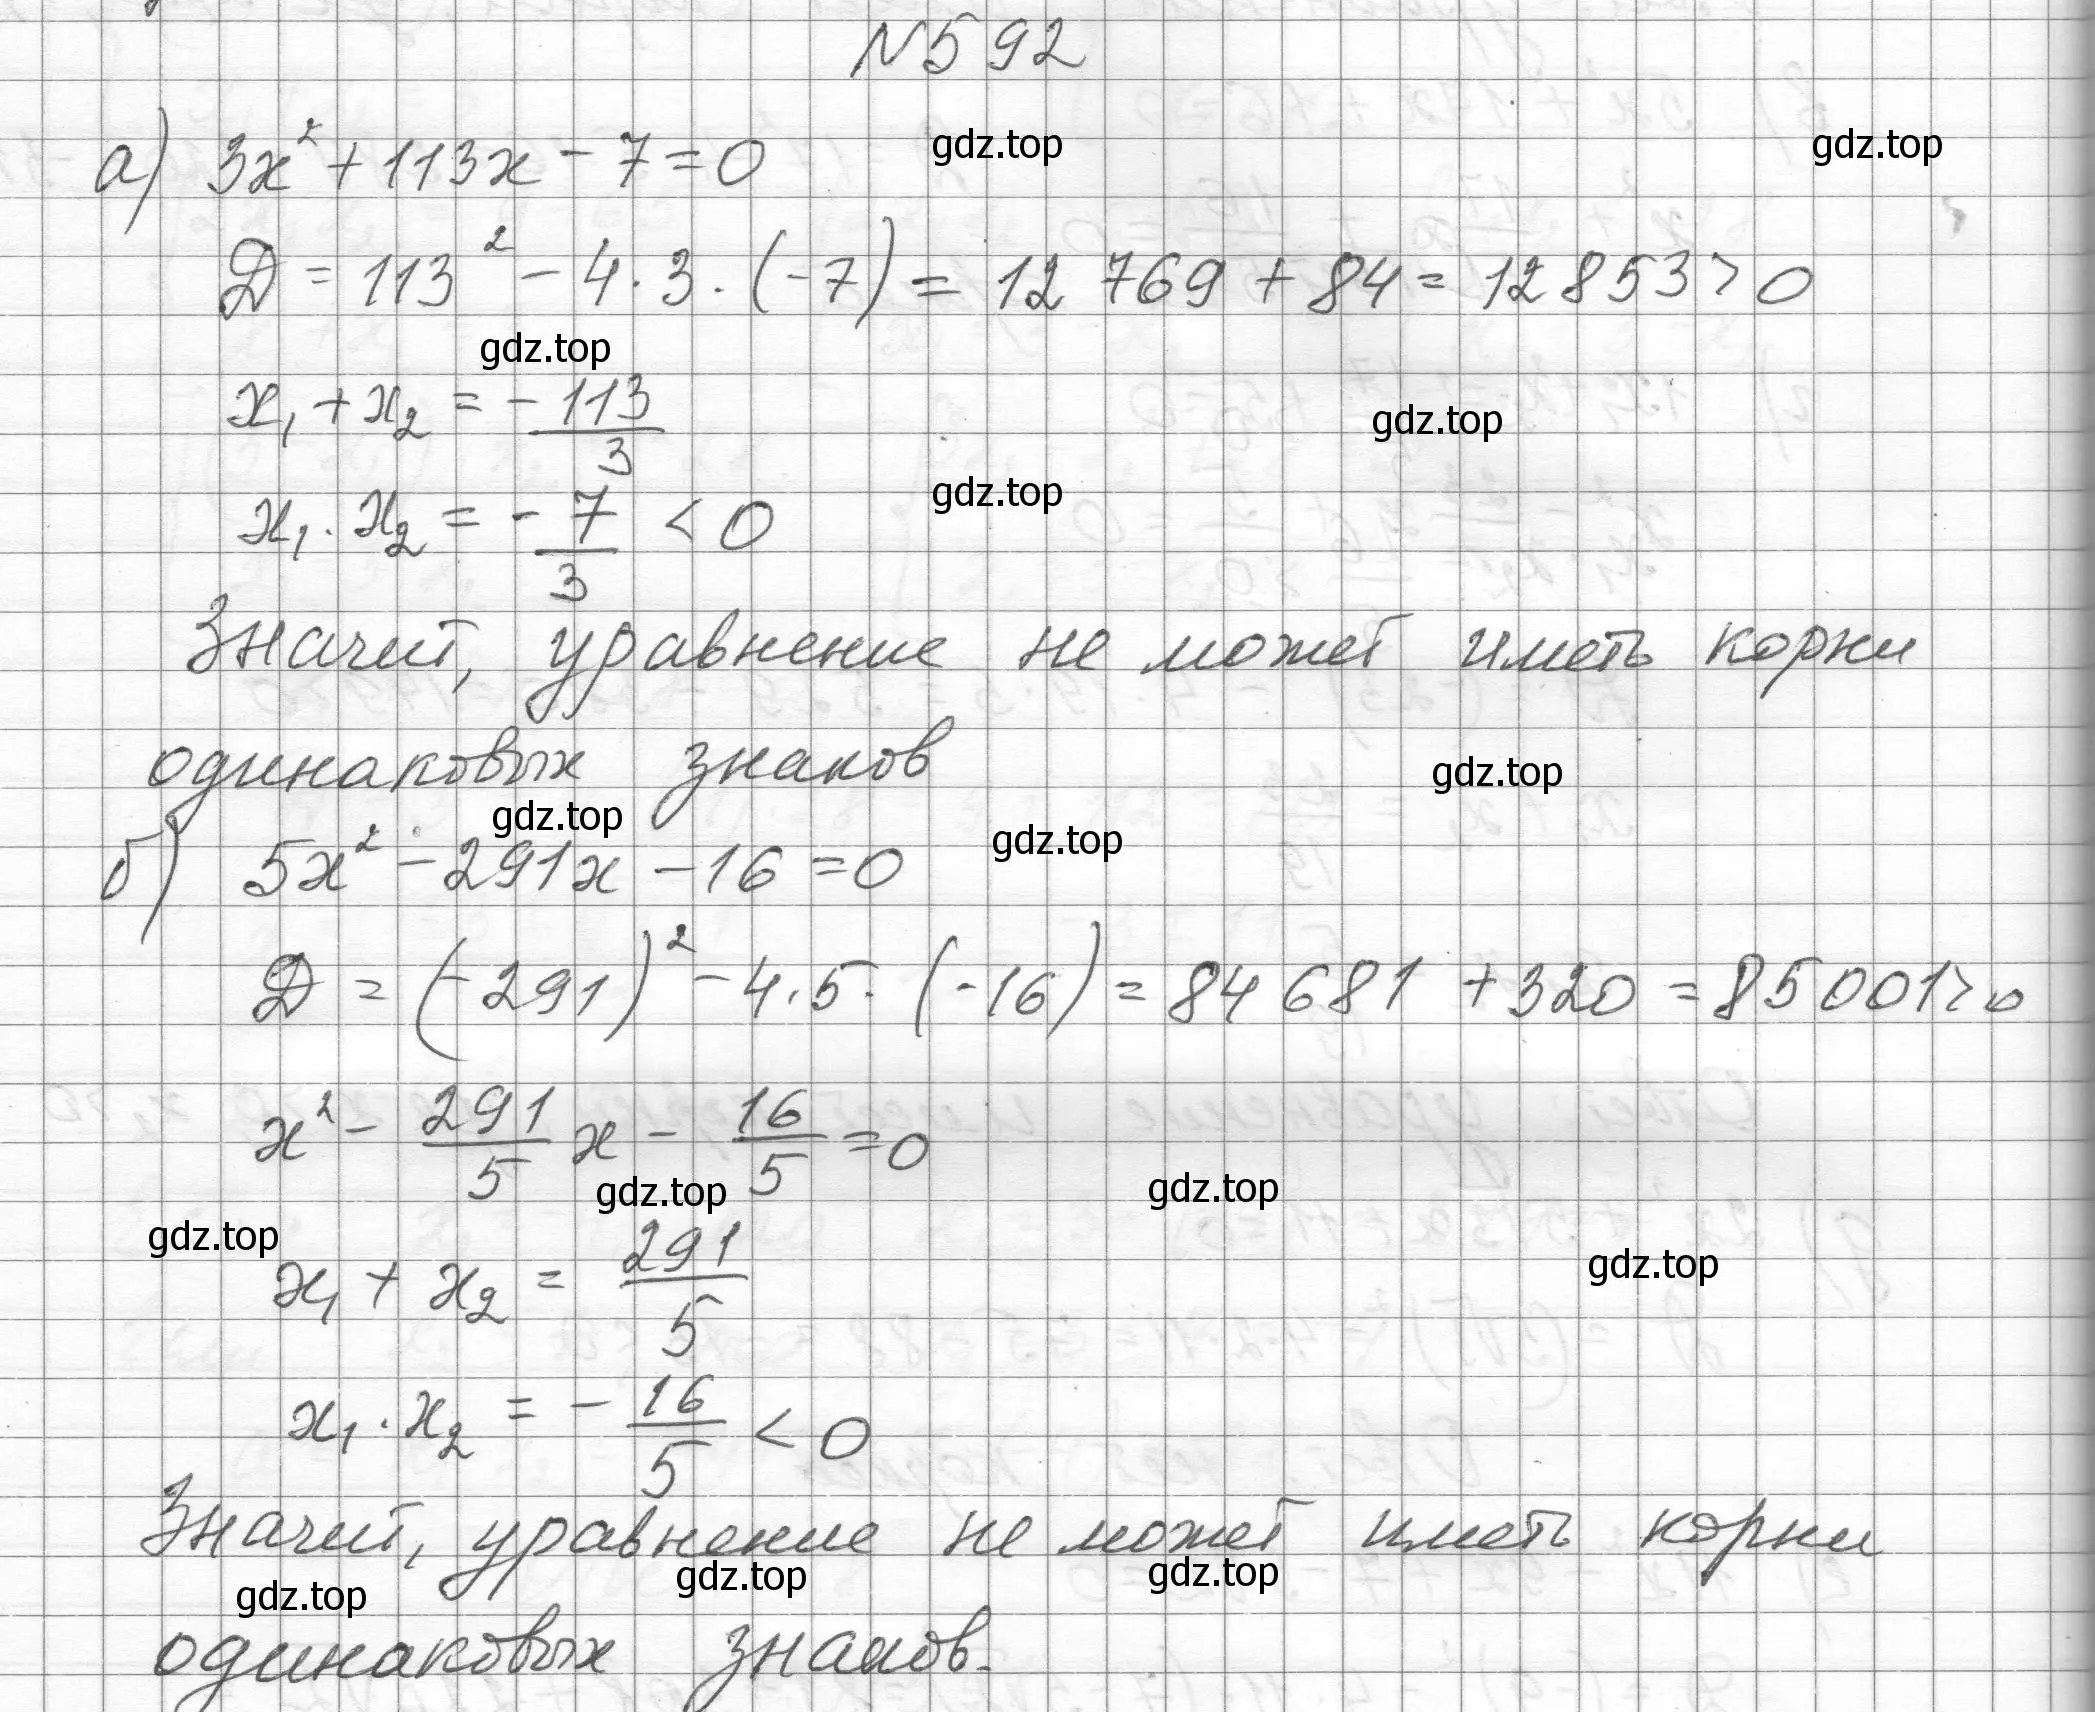 №592
gdz.top
gdz.top
а) 3x² + 113x - 7 = 0
Д = 113² - 4·3·(-7) = 12 769 + 84 = 12853 > 0
gdz.top
x₁ + x₂ = -113/3
gdz.top
gdz.top
x₁·x₂ = -7/3 < 0
Значит, уравнение не может иметь корни
одинаковых знаков
gdz.top
gdz.top
gdz.top
б) 5x² - 291x - 16 = 0
Д = (-291)² - 4·5·(-16) = 84 681 + 320 = 85001 > 0
x² - 291/5 x - 16/5 = 0
gdz.top
gdz.top
gdz.top
gdz.top
x₁ + x₂ = 291/5
x₁·x₂ = -16/5 < 0
Значит, уравнение не может иметь корни
gdz.top
gdz.top
gdz.top
одинаковых знаков.